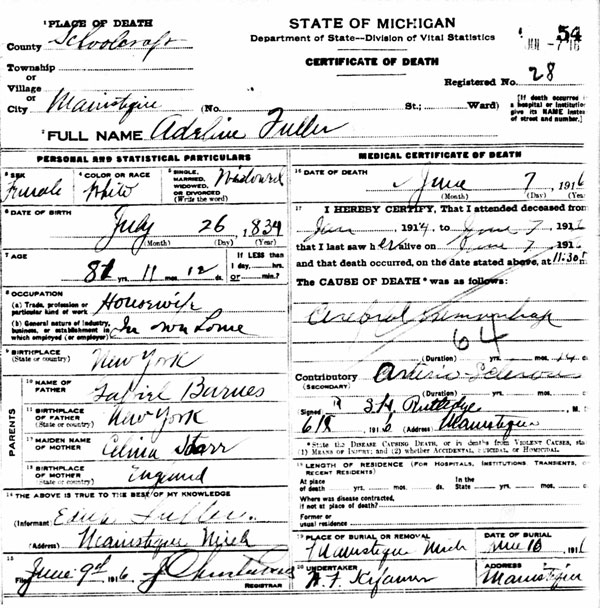 STATE OF MICHIGAN
Department of State--Division of Vital Statistics
CERTIFICATE OF DEATH
54
Registered No. 28
1 PLACE OF DEATH
County Schoolcraft
Township
or
Village
or
City Manistique (No. St.; Ward)
[If death occurred
a hospital or institution
give its NAME instead
of street and number.]
2 FULL NAME Adeline Fuller
PERSONAL AND STATISTICAL PARTICULARS
3 SEX Female
4 COLOR OR RACE White
5 SINGLE, MARRIED, WIDOWED, OR DIVORCED (Write the word) Widowed
6 DATE OF BIRTH July 26, 1834
(Month) (Day) (Year)
7 AGE 81 yrs. 11 mos. 12 ds.
If LESS than
1 day,....hrs.
or....min.?
8 OCCUPATION
(a) Trade, profession or
particular kind of work Housewife
(b) General nature of industry,
business, or establishment in
which employed (or employer) In own home
9 BIRTHPLACE
(State or country) New York
PARENTS
10 NAME OF
FATHER Barnes
11 BIRTHPLACE
OF FATHER
(State or country) New York
12 MAIDEN NAME
OF MOTHER Starr
13 BIRTHPLACE
OF MOTHER
(State or country) England
14 THE ABOVE IS TRUE TO THE BEST OF MY KNOWLEDGE
(Informant) Fuller
(Address) Manistique Mich
15
Filed June 9th 1916
MEDICAL CERTIFICATE OF DEATH
16 DATE OF DEATH
June 7, 1916
(Month) (Day) (Year)
17 I HEREBY CERTIFY, That I attended deceased from
Jan 1914 to June 7 1916
that I last saw her alive on June 7 1916
and that death occurred, on the date stated above, at 11:30
The CAUSE OF DEATH* was as follows:
Cerebral Hemorrhage
64
(Duration) yrs. mos. ds.
Contributory Arterio-Sclerosis
(SECONDARY)
(Duration) yrs. mos.
Signed S.H. Rutledge M.
6/8 1916 (Address) Manistique
*State the DISEASE CAUSING DEATH, or in deaths from VIOLENT CAUSES, state
(1) MEANS OF INJURY; and (2) whether ACCIDENTAL, SUICIDAL, or HOMICIDAL.
18 LENGTH OF RESIDENCE (FOR HOSPITALS, INSTITUTIONS, TRANSIENTS, OR
RECENT RESIDENTS)
At place
of death yrs. mos. ds.
In the
State yrs. mos.
Where was disease contracted,
if not at place of death?
Former or
usual residence
19 PLACE OF BURIAL OR REMOVAL
Manistique Mich
DATE OF BURIAL
June 10, 1916
20 UNDERTAKER
ADDRESS
Manistique